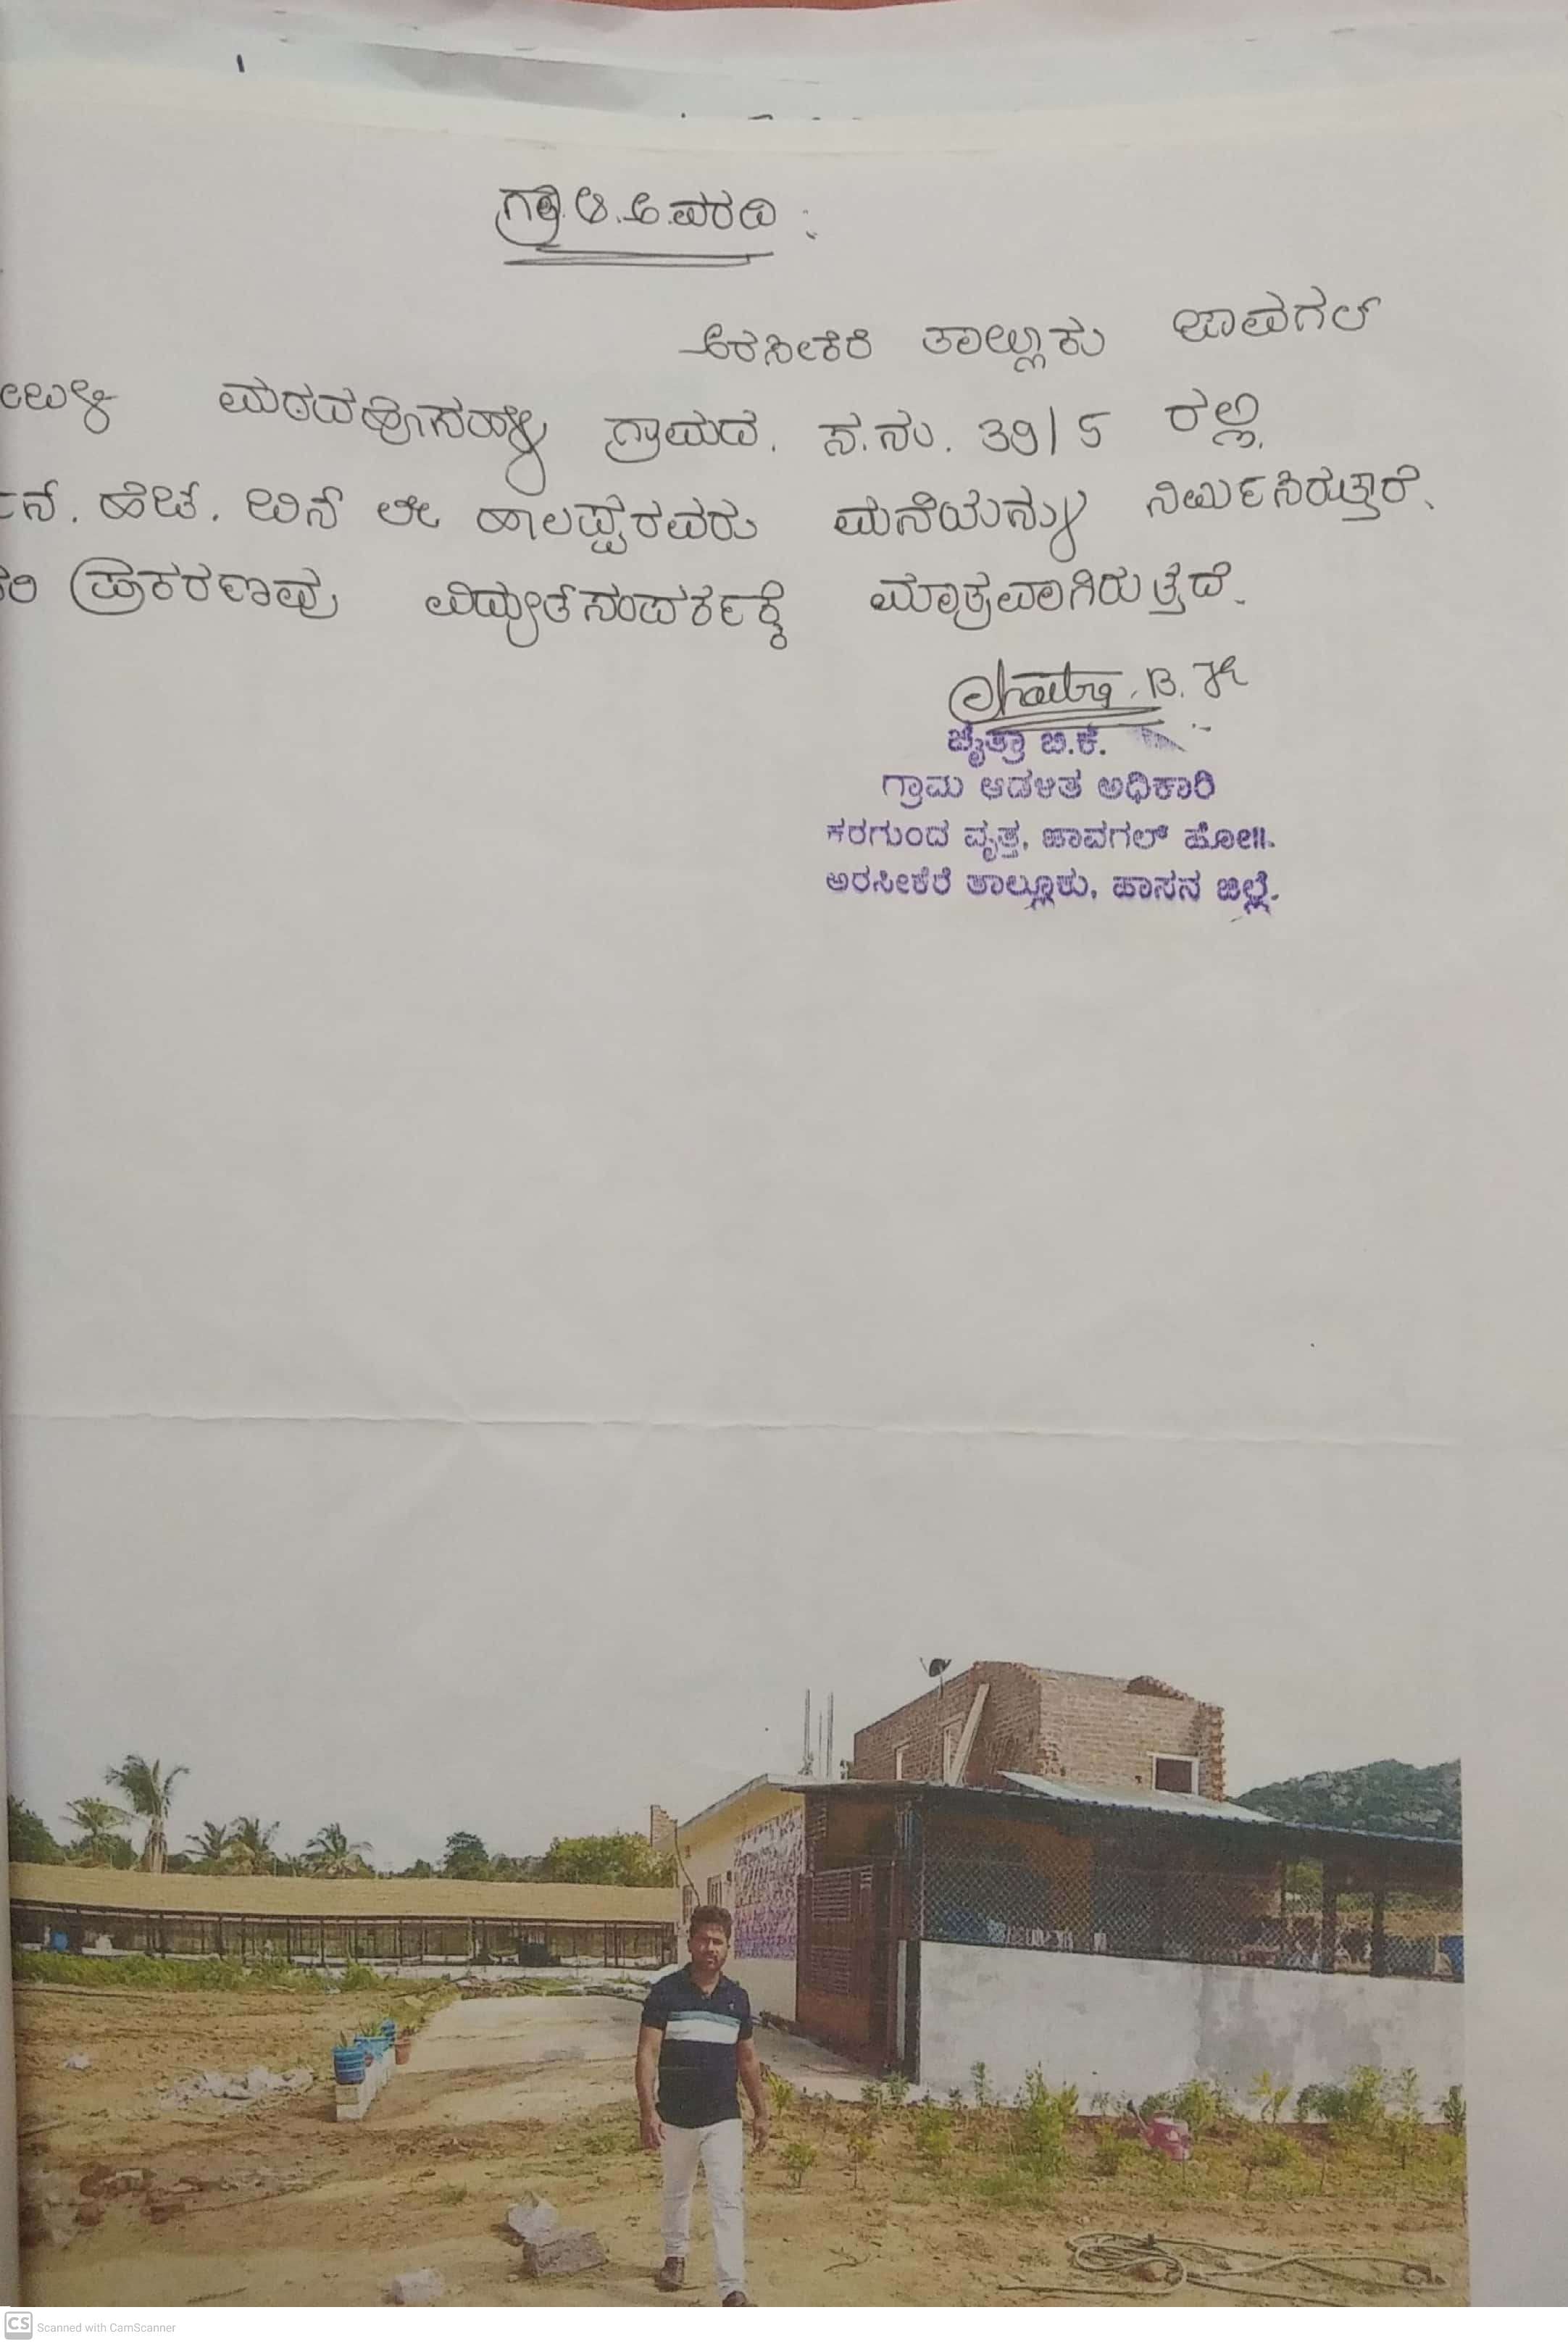 ಗ್ರಾ.ಆ.ಅ.ವರದಿ :
ಅರಸೀಕೆರೆ ತಾಲ್ಲೂಕು ಜಾವಗಲ್
ಮಠದಹೊಸಹಳ್ಳಿ ಗ್ರಾಮದ. ಸ.ನಂ. 39/5 ರಲ್ಲಿ
ನ್. ಹೆಚ್. ಬಿನ್ ಲೇ ಹಾಲಪ್ಪರವರು ಮನೆಯನ್ನು ನಿರ್ಮಿಸಿರುತ್ತಾರೆ.
ಪ್ರಕರಣವು ವಿದ್ಯುತ್‌ಸಂಪರ್ಕಕ್ಕೆ ಮಾತ್ರವಾಗಿರುತ್ತದೆ.
Chaitra. B. K
ಚೈತ್ರಾ ಬಿ.ಕೆ.
ಗ್ರಾಮ ಆಡಳಿತ ಅಧಿಕಾರಿ
ಕರಗುಂದ ವೃತ್ತ, ಜಾವಗಲ್ ಹೋ॥.
ಅರಸೀಕೆರೆ ತಾಲ್ಲೂಕು, ಹಾಸನ ಜಿಲ್ಲೆ.
CS Scanned with CamScanner